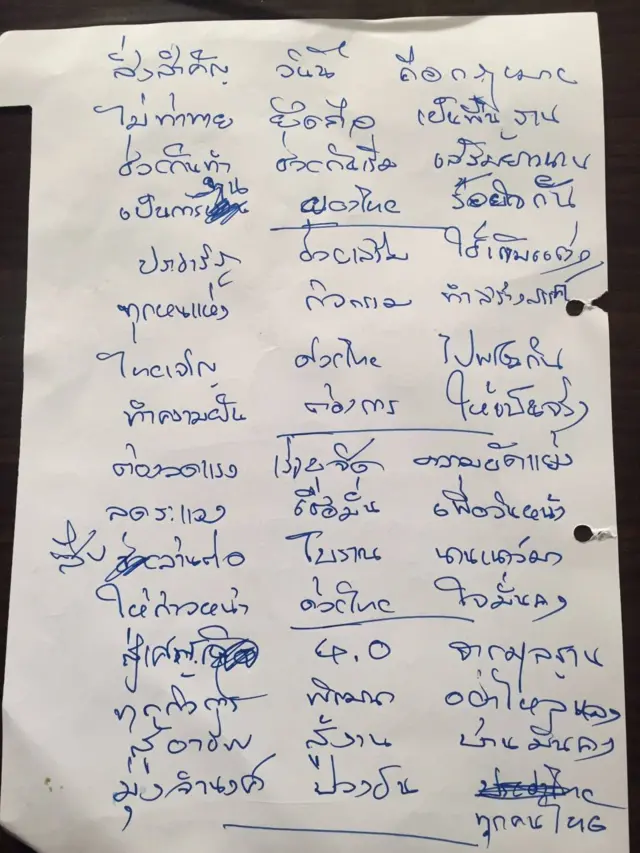 สิ่งสำคัญ วันนี้ คือกฎหมาย
ไม่ท้าทาย ยึดถือ เป็นพื้นฐาน
ช่วยกันทำ ช่วยกันเริ่ม เสริมยาวนาน
เป็นการ ของไทย ร้อยใจกัน
ประชารัฐ ช่วยเสริม ใช้เติมแต่ง
ทุกหนแห่ง กิจกรรม ทำสร้างสรรค์
ไทยเจริญ ช่วยไทย ไปพร้อมกัน
ทำความฝัน ต้องการ ให้เป็นจริง
ต้องลดแรง เร่งขจัด ความขัดแย้ง
ลดระแวง เชื่อมั่น เพื่อวันหน้า
สืบสานต่อ โบราณ นานเนาว์มา
ให้ก้าวหน้า ช่วยไทย ใจมั่นคง
สู่ 4.0 จากมูลฐาน
พัฒนา อย่าใหลหลง
สู้อาชีพ สู้งาน บ้านมั่นคง
มุ่งจำนงค์ ป่วงชน
ทุกคนไทย